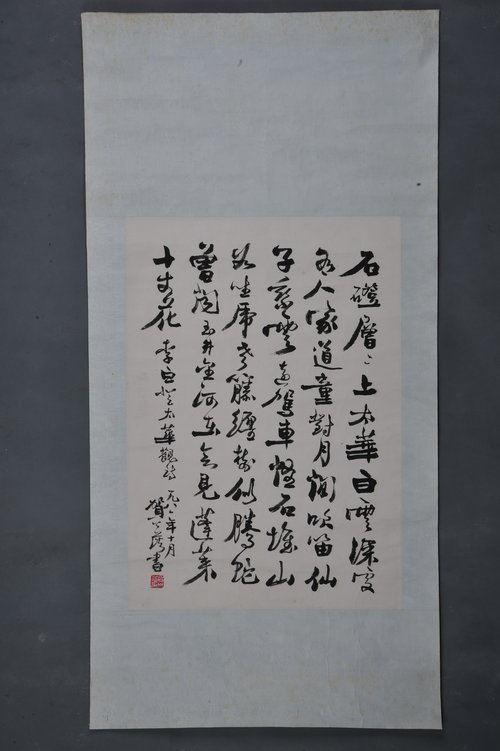 石磴層〻上太華白雲深處
有人家道童對月閒吹笛仙
子乘雲遠駕車怪石堆山
如坐虎老藤纏樹似騰蛇
曾聞玉井金河在會見蓬萊
十丈花 李白登太華觀詩 一九八二年十月
賀 書